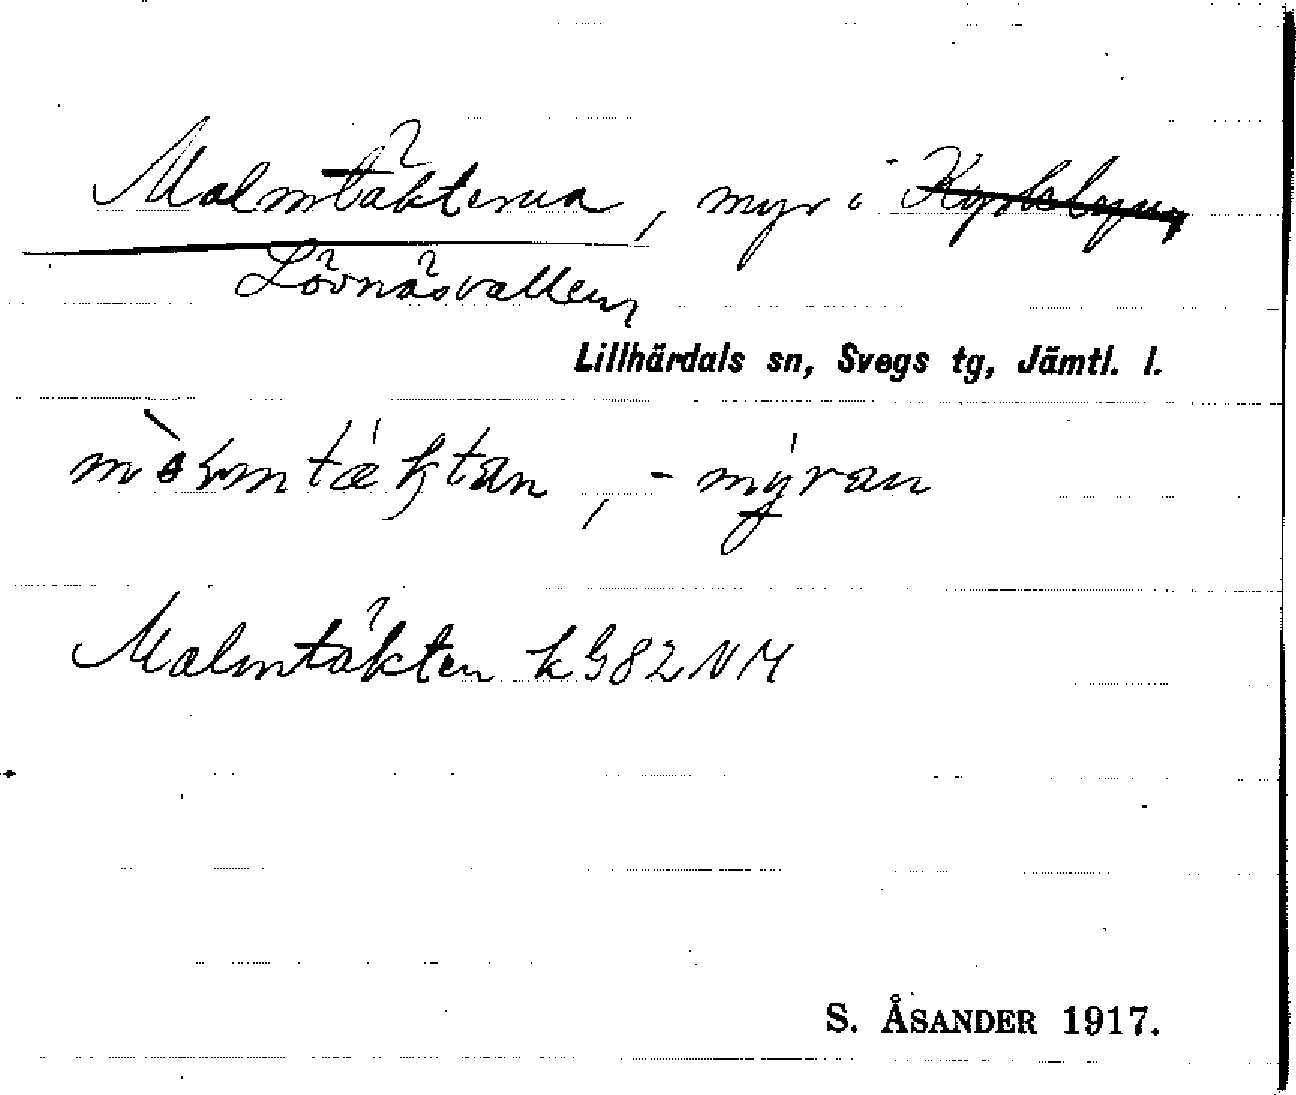 Malmtäkterna, myr i Kyrkbyn,
Lövnäsvallen,
Lillhärdals sn, Svegs tg, Jämtl. l.
, -mýran
Malmtäkten k G82 NM
S. ÅSANDER 1917.